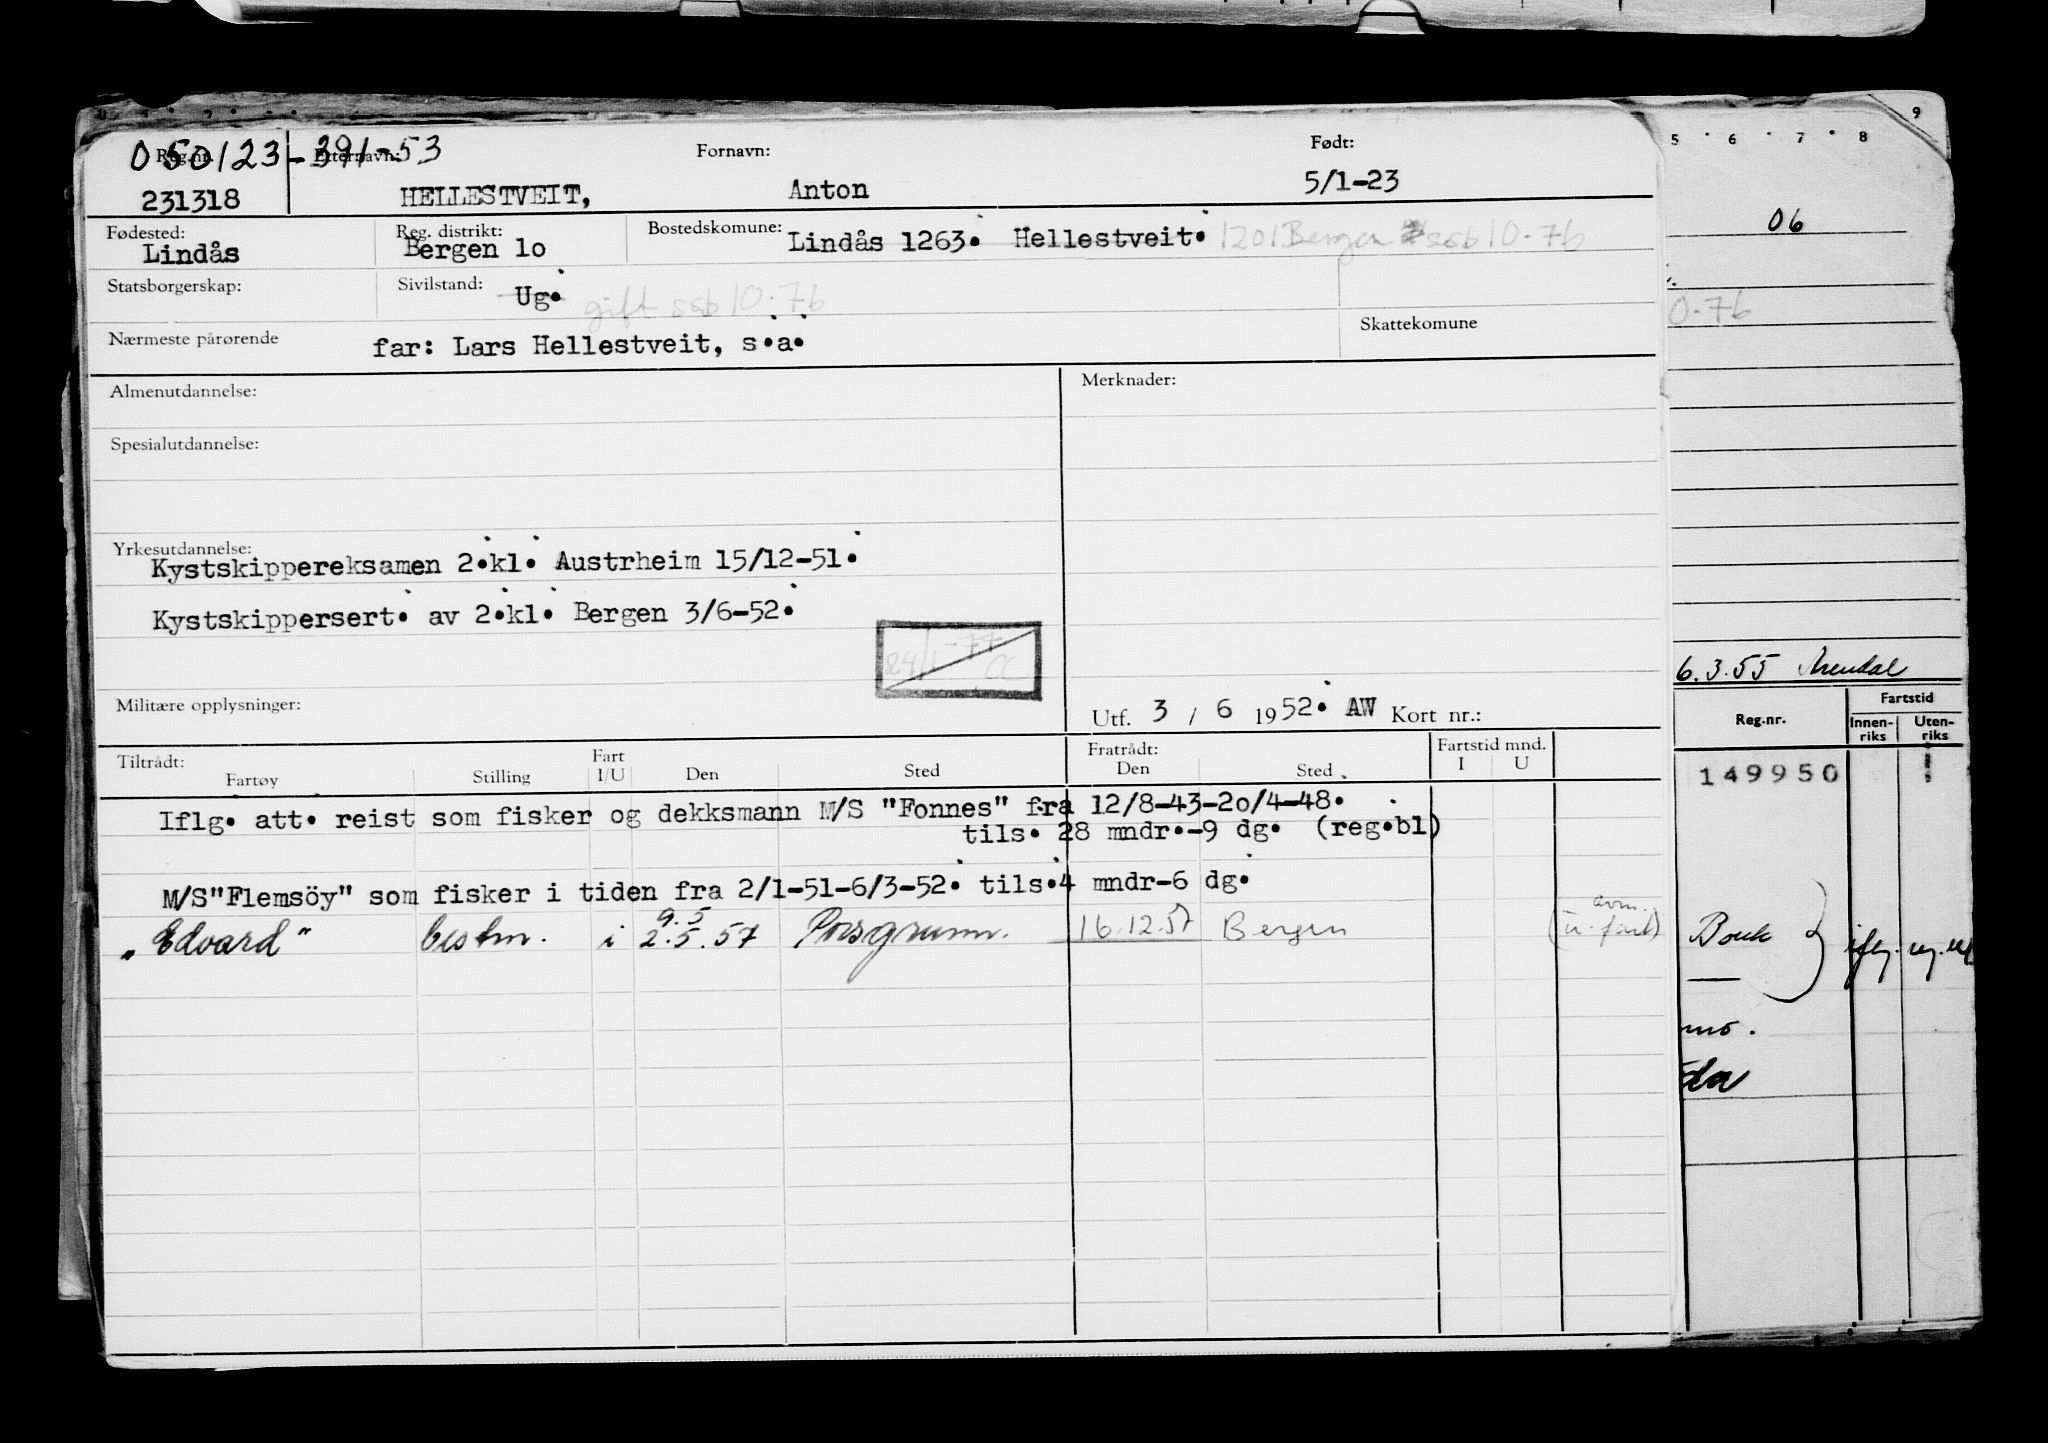 050123-391-53
Reg.nr. Etternavn: Fornavn: Født:
231318 HELLESTVEIT, Anton 5/1-23
Fødested: Reg. distrikt: Bostedskomune:
Lindås Bergen 1o Lindås 1263. Hellestveit. 1201 Bergen ssb 10.76
Statsborgerskap: Sivilstand: Ug. gift ssb 10.76
Nærmeste pårørende far: Lars Hellestveit, s.å. Skattekomune
Almenutdannelse: Merknader:
Spesialutdannelse:
Yrkesutdannelse:
Kystskippereksamen 2.kl. Austrheim 15/12-51.
Kystskippersert. av 2.kl. Bergen 3/6-52.
24/1-77
Militære opplysninger: Utf. 3 / 6 1952. AW Kort nr.:
Tiltrådt: Fart Fratrådt: Fartstid mnd.
Fartøy Stilling I/U Den Sted Den Sted I U
Iflg. att. reist som fisker og dekksmann M/S "Fonnes" fra 12/8-43-2o/4-48.
tils. 28 mndr.-9 dg. (reg.bl)
M/S"Flemsöy" som fisker i tiden fra 2/1-51-6/3-52. tils.4 mndr-6 dg.
9.5
"Edvard" bestm. i 2.5.57 Porsgrunn. 16.12.57 Bergen (u. fart)
5 6 7 8 9
06
0.76
6.3.55 Arendal
Fartstid
Reg.nr. Innen-riks Uten-riks
149950